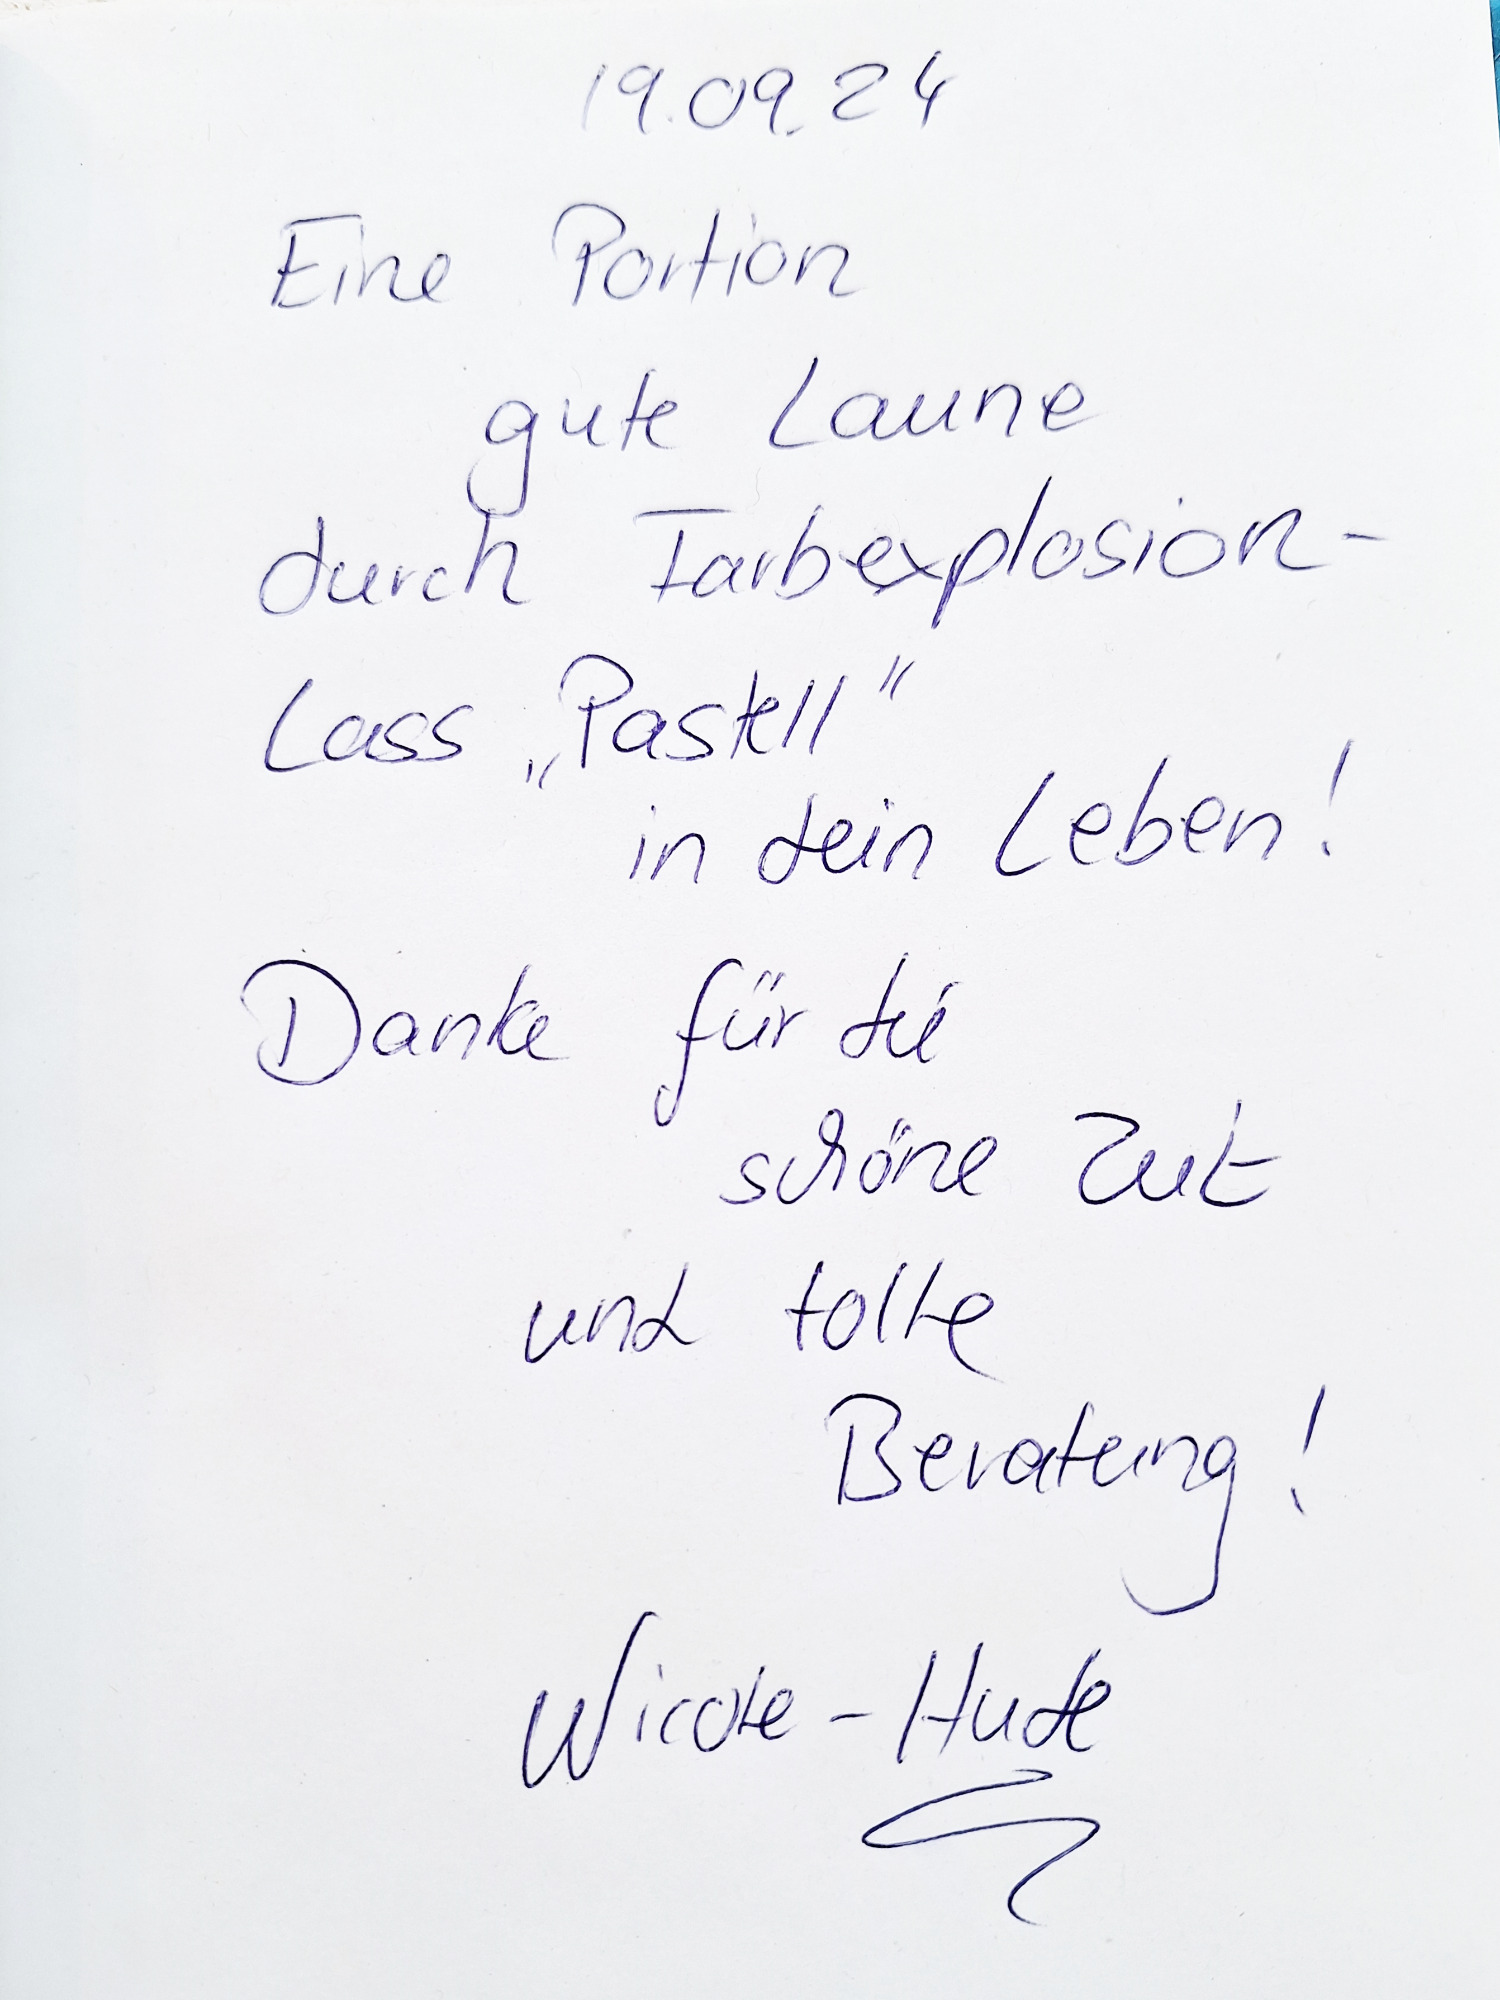 19.09.24
Eine Portion
gute Laune
durch Farbexplosion-
Lass „Pastell"
in dein Leben!
Danke für die
schöne Zeit
und tolle
Beratung!
Nicole - Hude